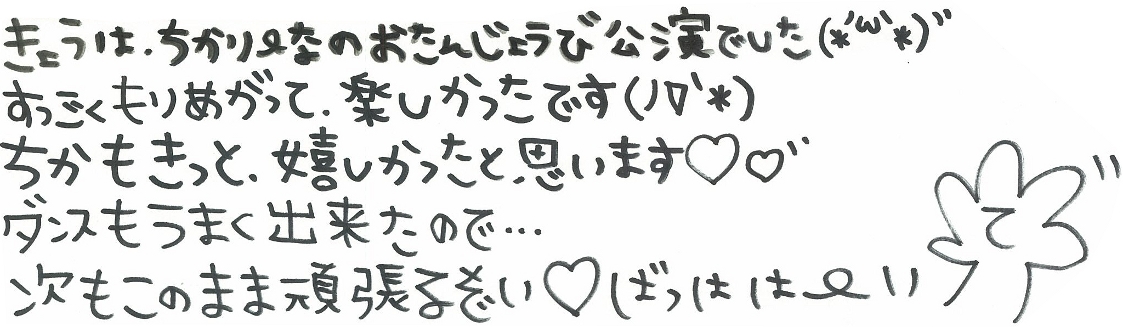 きょうは、ちかりーなのおたんじょうび公演でした(*´ω`*)”
すっごくもりめがって、楽しかったです(ﾉ∇`*)
ちかもきっと、嬉しかったと、思います♡♡”
ダンスもうまく出来たので…
次もこのまま頑張るぞい♡ ばっははーい
て